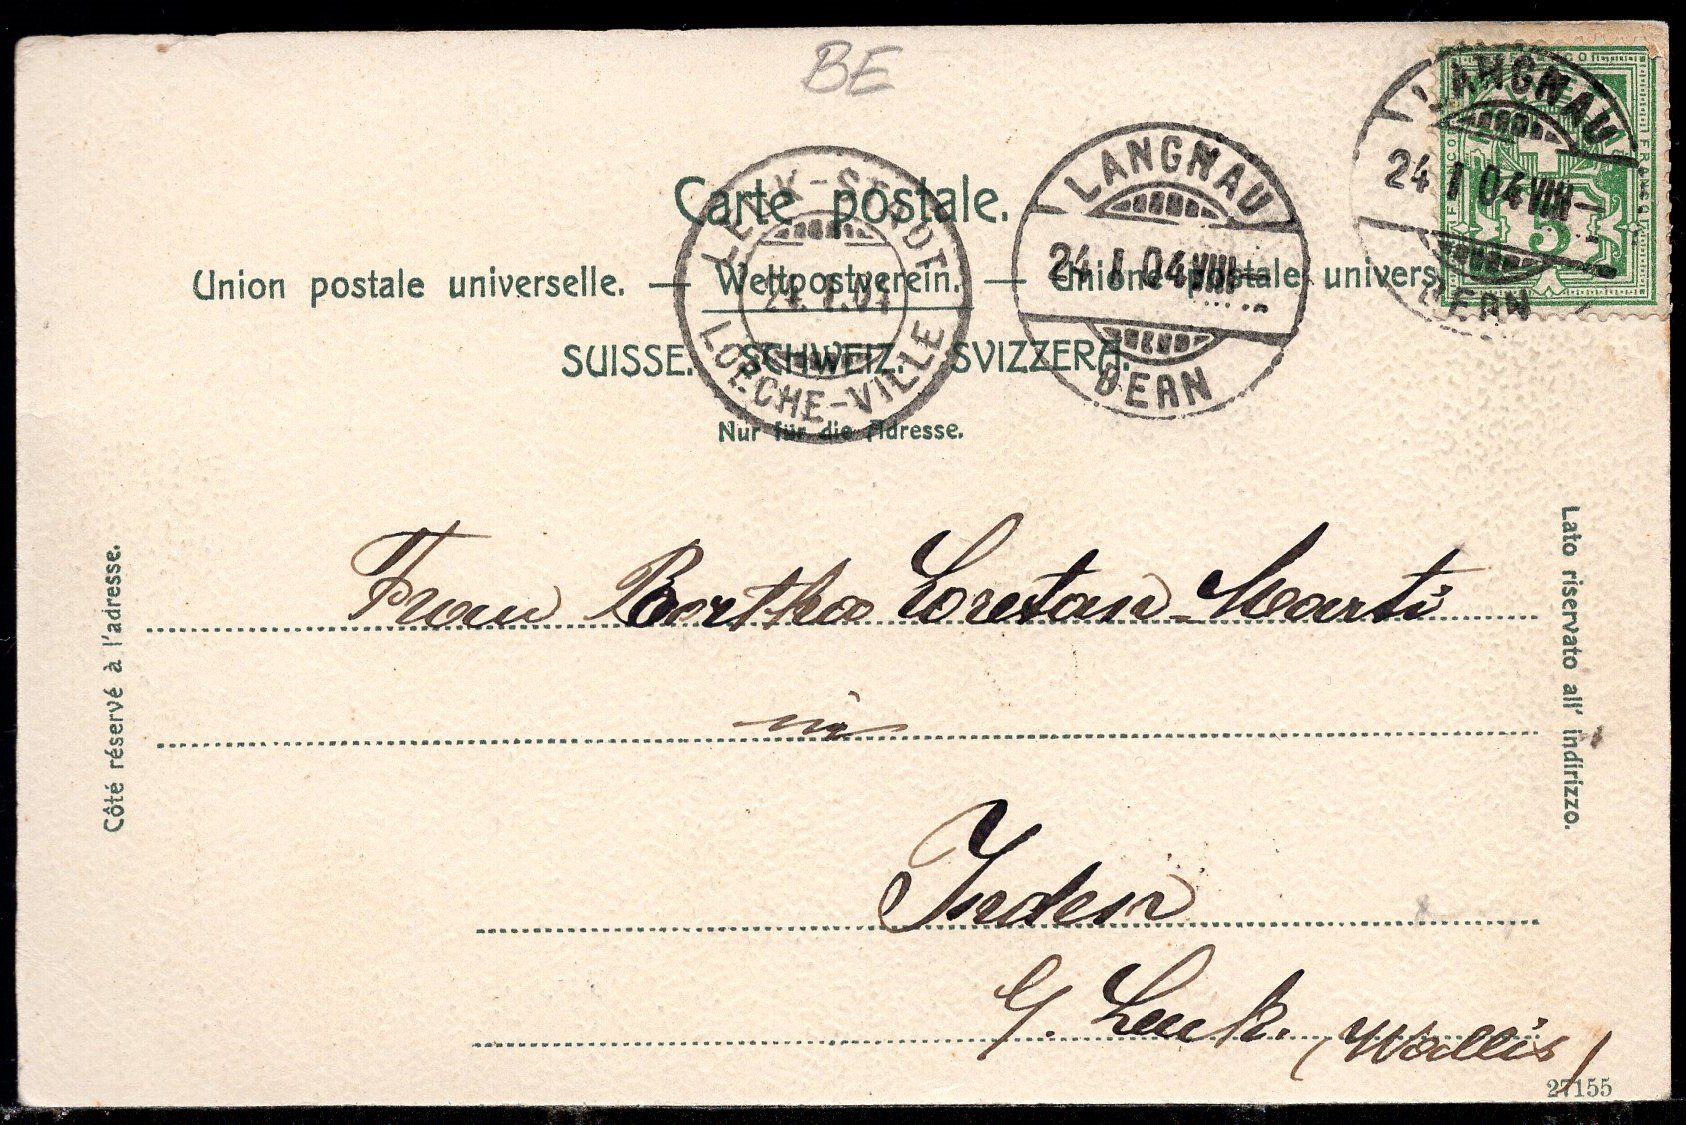 BE
LANGNAU
24 I 04 VIII
BERN
LANGNAU
24 I 04 VIII
BERN
LEUK-STADT
24. I. 04
LOECHE-VILLE
Carte postale.
Union postale universelle. — Weltpostverein. — Unione postale univers
SUISSE. SCHWEIZ. SVIZZERA.
Nur für die Adresse.
Côté réservé à l'adresse.
Lato riservato all' indirizzo.
Frau Bertha Loretan-Marti
in
Inden
G. Leuk. (Wallis)
27155
5